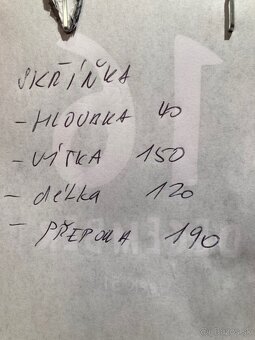 SKŘÍŇKA
- HLOUBKA 40
- VÍTKA 150
- délka 120
- PŘEPONA 190